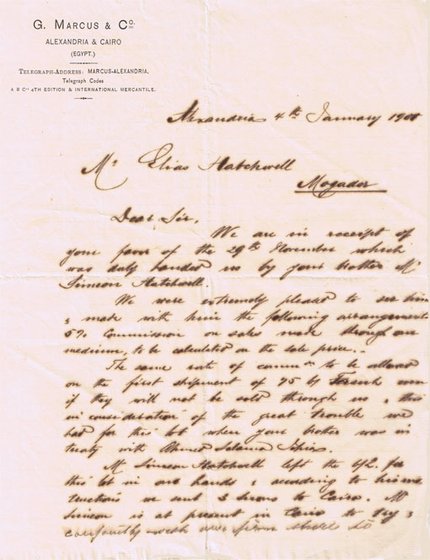 G. MARCUS & Co.
ALEXANDRIA & CAIRO
(EGYPT.)
TELEGRAPH-ADDRESS: MARCUS-ALEXANDRIA.
Telegraph Codes
A B C 4TH EDITION & INTERNATIONAL MERCANTILE.
Alexandria 4th January 1901
Mr Elias Hatchwell
Mogador
Dear Sir,
We are in receipt of
your favor of the 29th November which
was duly handed us by your brother Mr
Simeon Hatchwell.
We were extremely pleased to see him
& made with him the following arrangement
5% Commission on sales made through our
medium, to be calculated on the sale price.
The same rate of commn to be allowed
on the first shipment of 75 even
if they will not be sold through us, this
in consideration of the great trouble we
had for this lot when your brother was in
treaty with
Mr Simeon Hatchwell left the for
this lot in our hands & according to his ins
tructions we sent 2 serons to Cairo. Mr
Simeon is at present in Cairo to try &